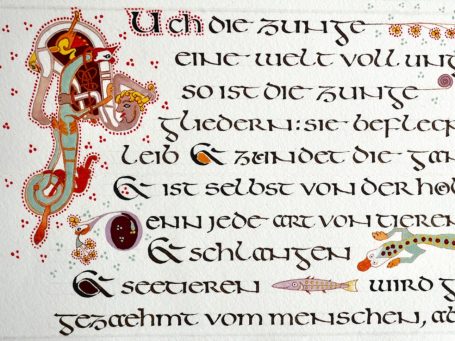 AUch die zunge
eine welt voll ung
so ist die zunge
gliedern: sie befleck
leib & zündet die gan
& ist selbst von der hö
Denn jede art von tieren
& schlangen
& seetieren wird g
gezaehmt vom menschen, ab